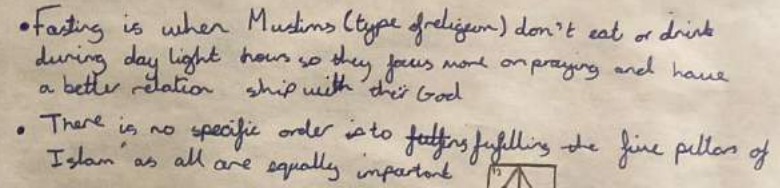 • Fasting is when Muslims (type of religeon) don't eat or drink
during day light hours so they focus more on praying and have
a better relation ship with their God
• There is no specific order is to fulfilling the five pillars of
Islam as all are equally important